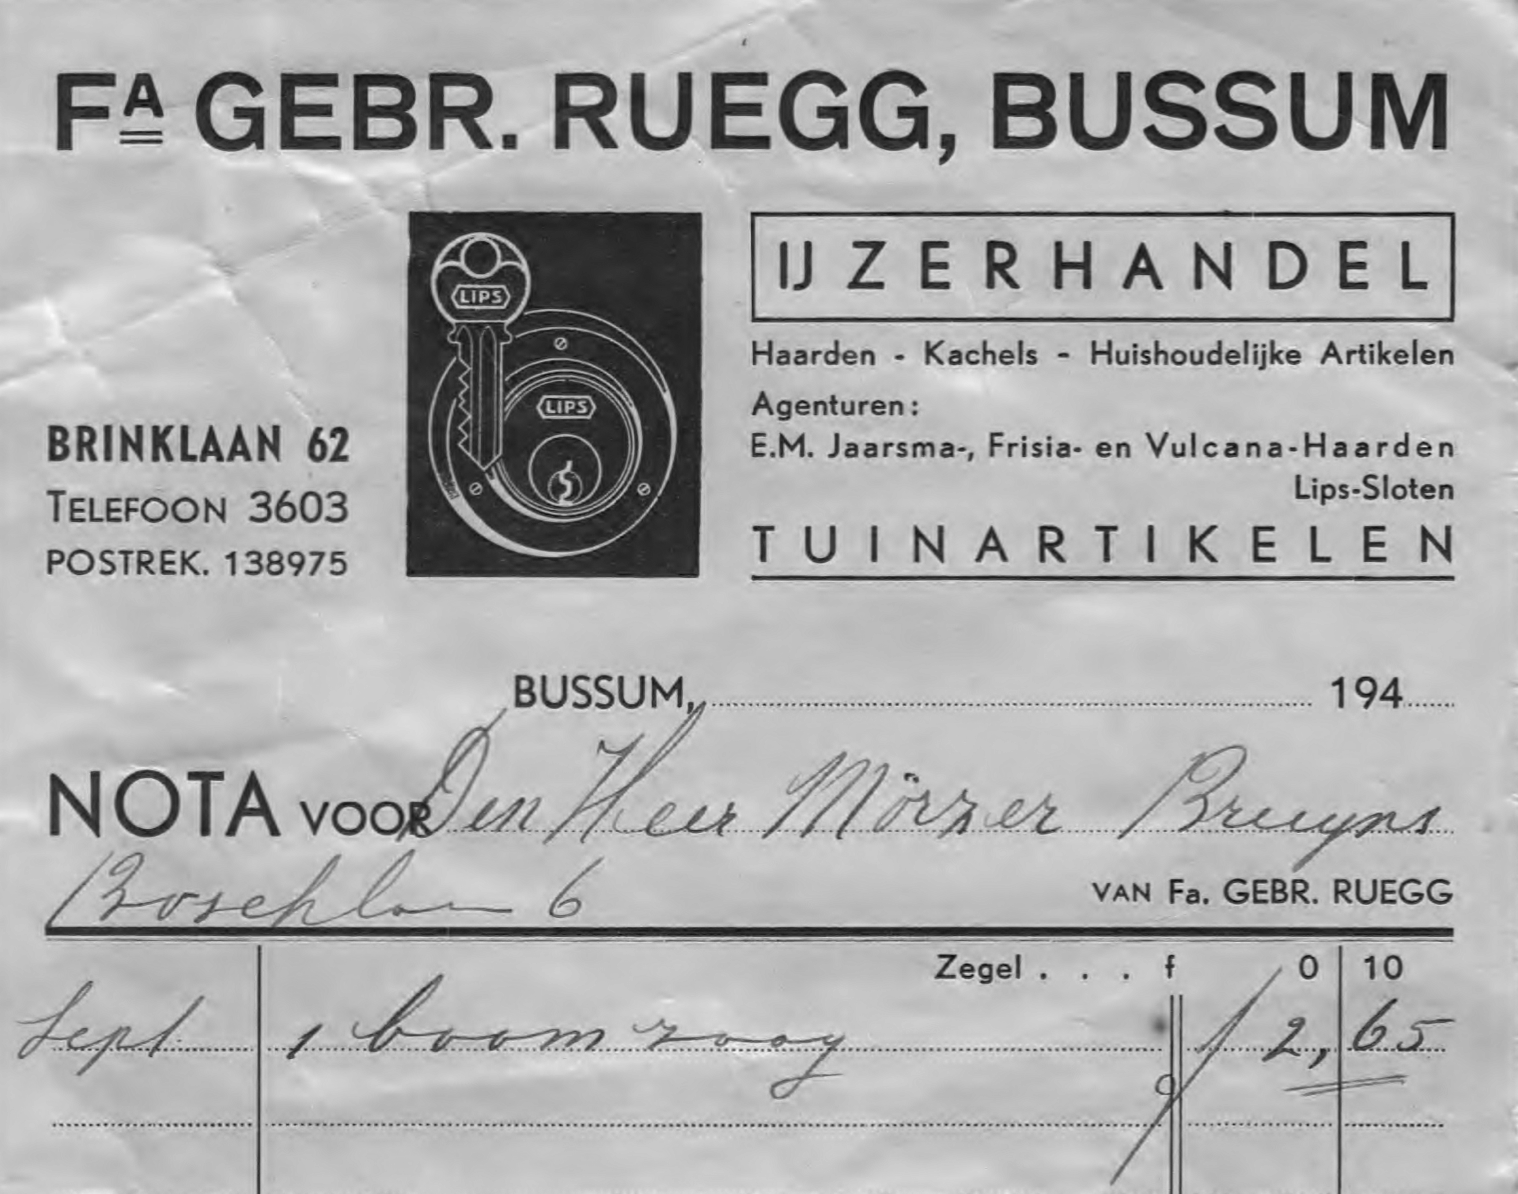 FA GEBR. RUEGG, BUSSUM
LIPS
LIPS
IJZERHANDEL
Haarden - Kachels - Huishoudelijke Artikelen
Agenturen:
E.M. Jaarsma-, Frisia- en Vulcana-Haarden
Lips-Sloten
TUINARTIKELEN
BRINKLAAN 62
TELEFOON 3603
POSTREK. 138975
BUSSUM, 194
NOTA VOOR Den Heer Mörzer Bruyns
Boschlaan 6
VAN Fa. GEBR. RUEGG
Zegel . . . f 0 10
Sept 1 boomzaag f 2,65